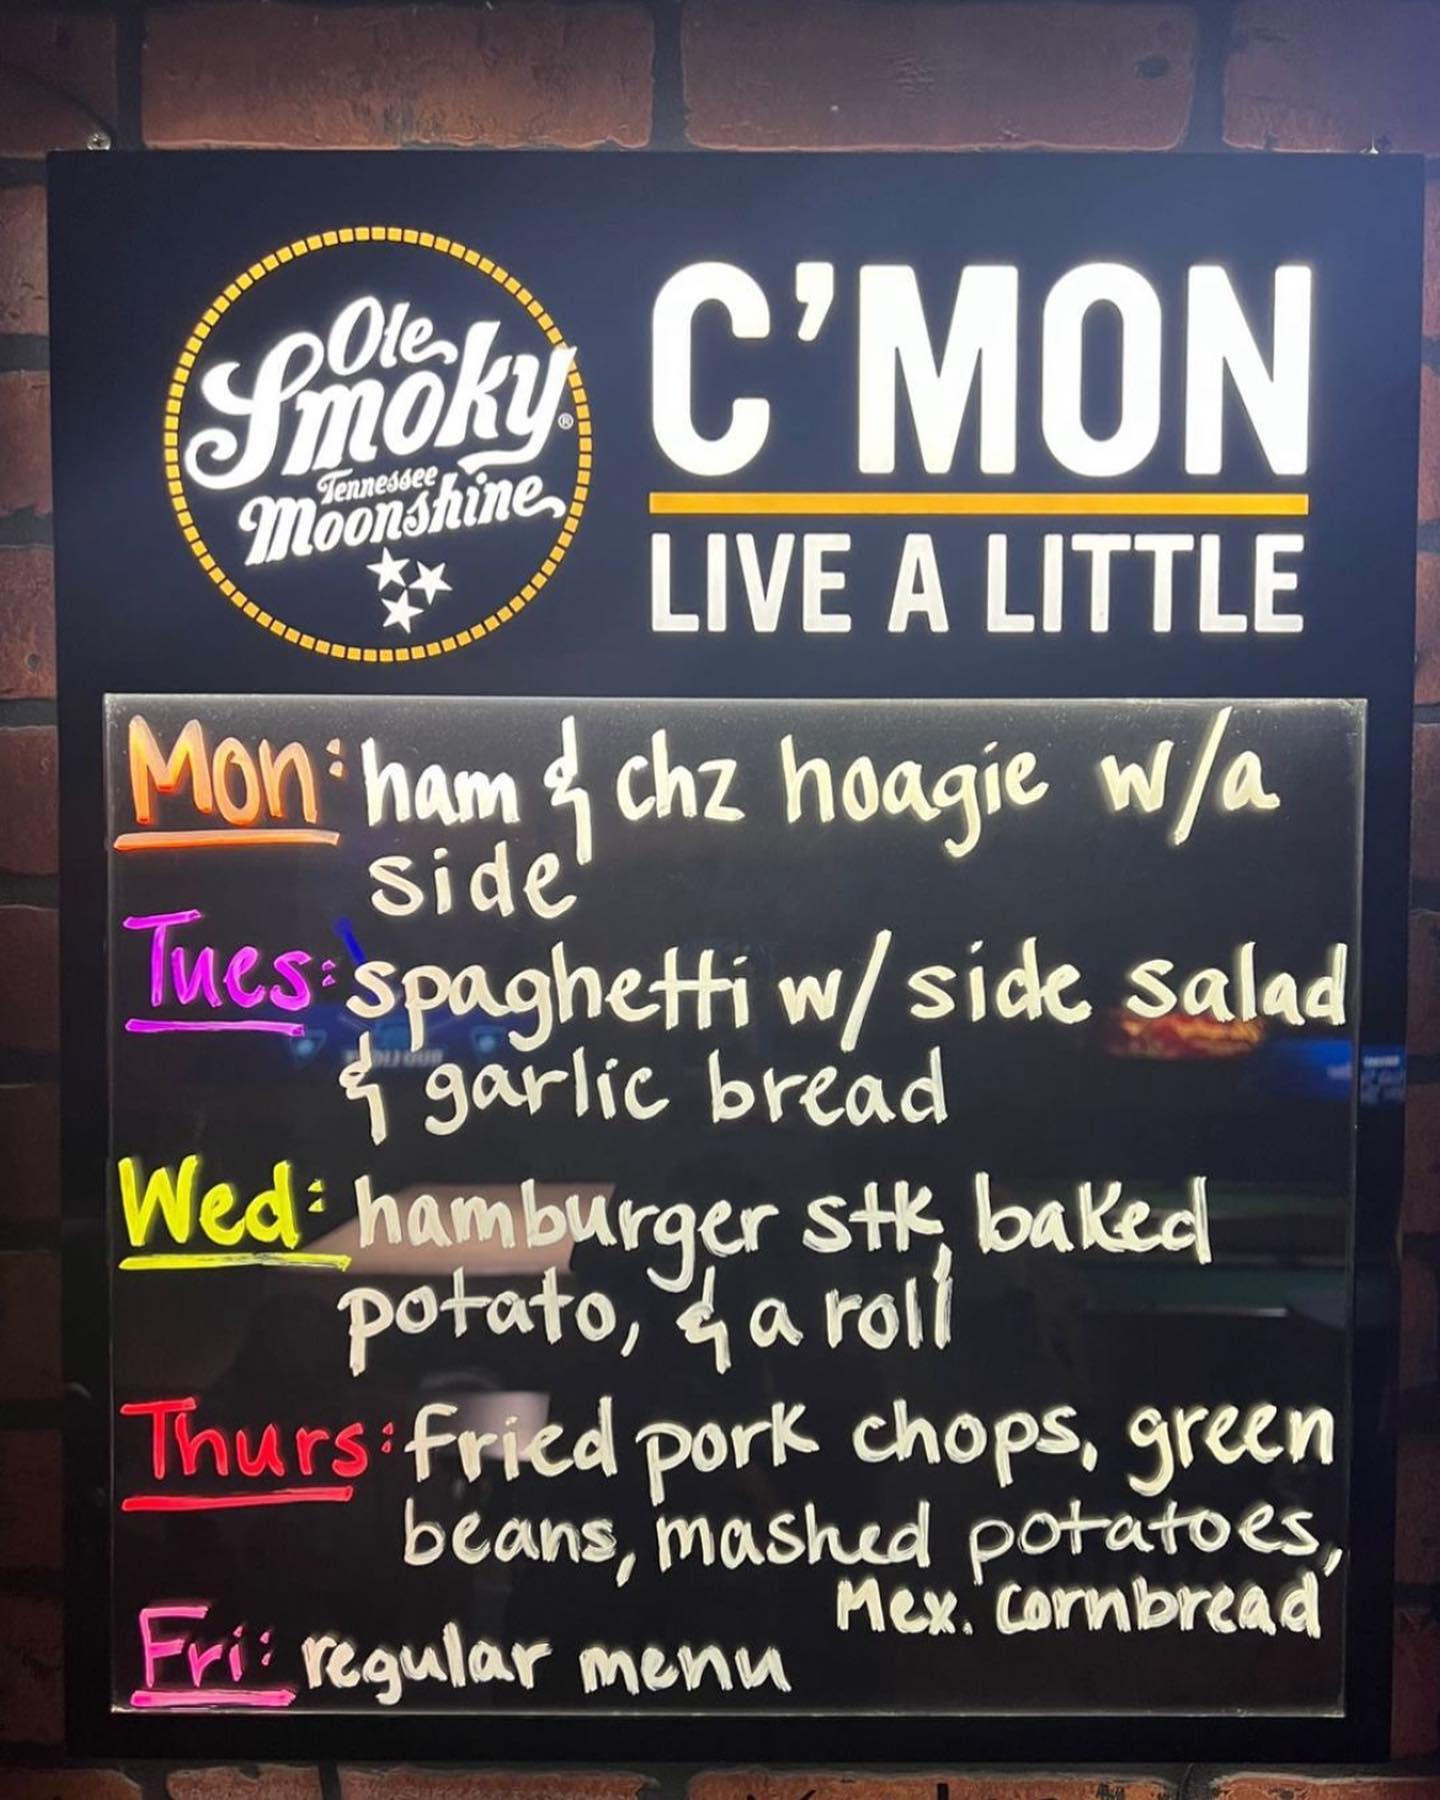 Ole
Smoky®
Tennessee
Moonshine
C'MON
LIVE A LITTLE
Mon: ham & chz hoagie w/a
side
Tues: spaghetti w/ side salad
& garlic bread
Wed: hamburger stk, baked
potato, & a roll
Thurs: fried pork chops, green
beans, mashed potatoes,
Mex. cornbread
Fri: regular menu